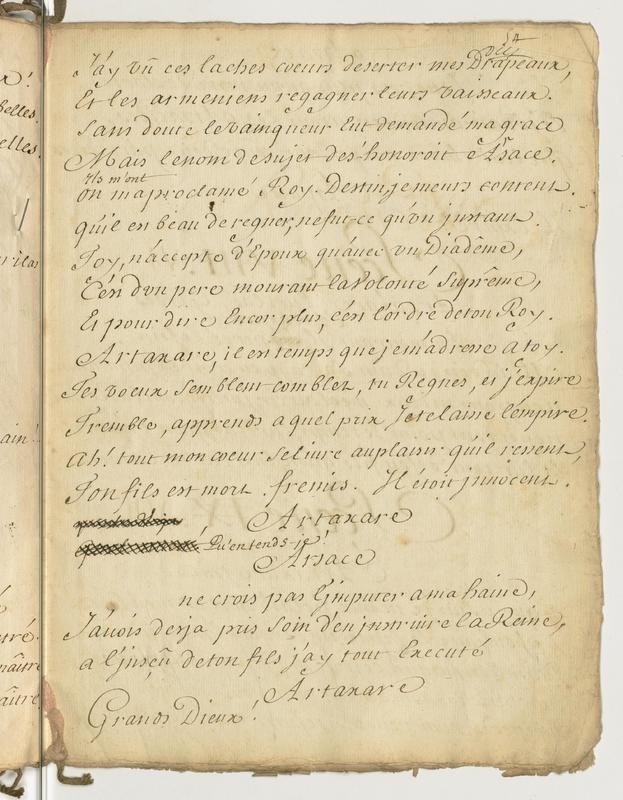 54
ces
J'ay vû ces laches coeurs deserter mes Drapeaux,
Et les armeniens regagner leurs vaisseaux.
Sans doute le vainqueur Eut demandé ma grace
Mais le nom de sujet des-honoroit Arsace.
Ils m'ont
on m'a proclamé Roy. Destin, je meurs content.
qu'il est beau de regner, ne fut-ce qu'un instant.
Toy, n'accepte d'Epoux qu'avec un Diadême,
C'est d'un pere mourant la Volonté Suprême,
Et pour dire Encor plus, c'est l'ordre de ton Roy.
Artaxare, il est temps que je m'adresse a toy.
Tes voeux semblent comblez, tu Regnes, et j'expire
Tremble, apprends a quel prix Je te laisse l'empire.
Ah! tout mon coeur se livre au plaisir qu'il ressent,
Ton fils est mort. fremis. Il étoit jnnocent.
Artaxare
Qu'entends-je!
Arsace
ne crois pas l'jmputer a ma haine,
J'avois desja pris soin d'en jnstruire la Reine,
a l'jnsçu de ton fils j'ay tout Executé
Artaxare
Grands Dieux!
x!
belles.
elles.
ain!
tré.
naître
naître